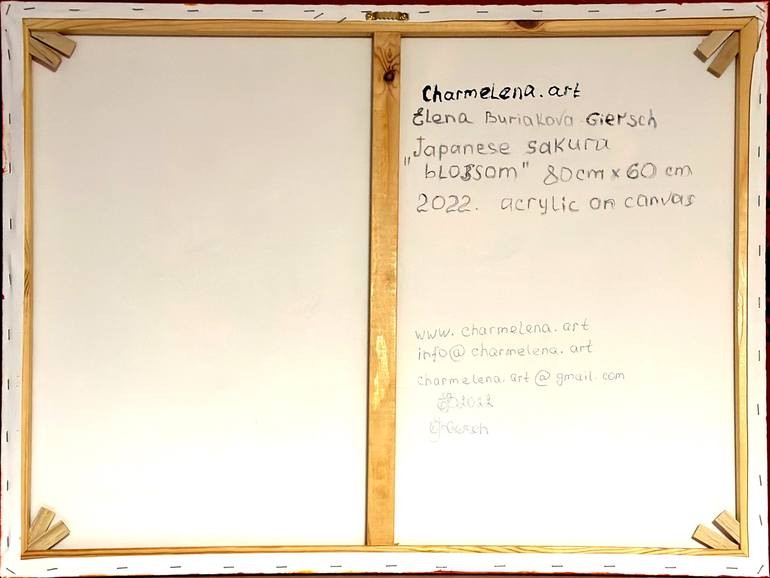 CharmeLena.art
Elena Buriakova Giersch
"Japanese sakura
bLossom" 80cm x 60 cm
2022. acrylic on canvas
www.charmelena.art
info@charmelena.art
charmelena.art@gmail.com
2022